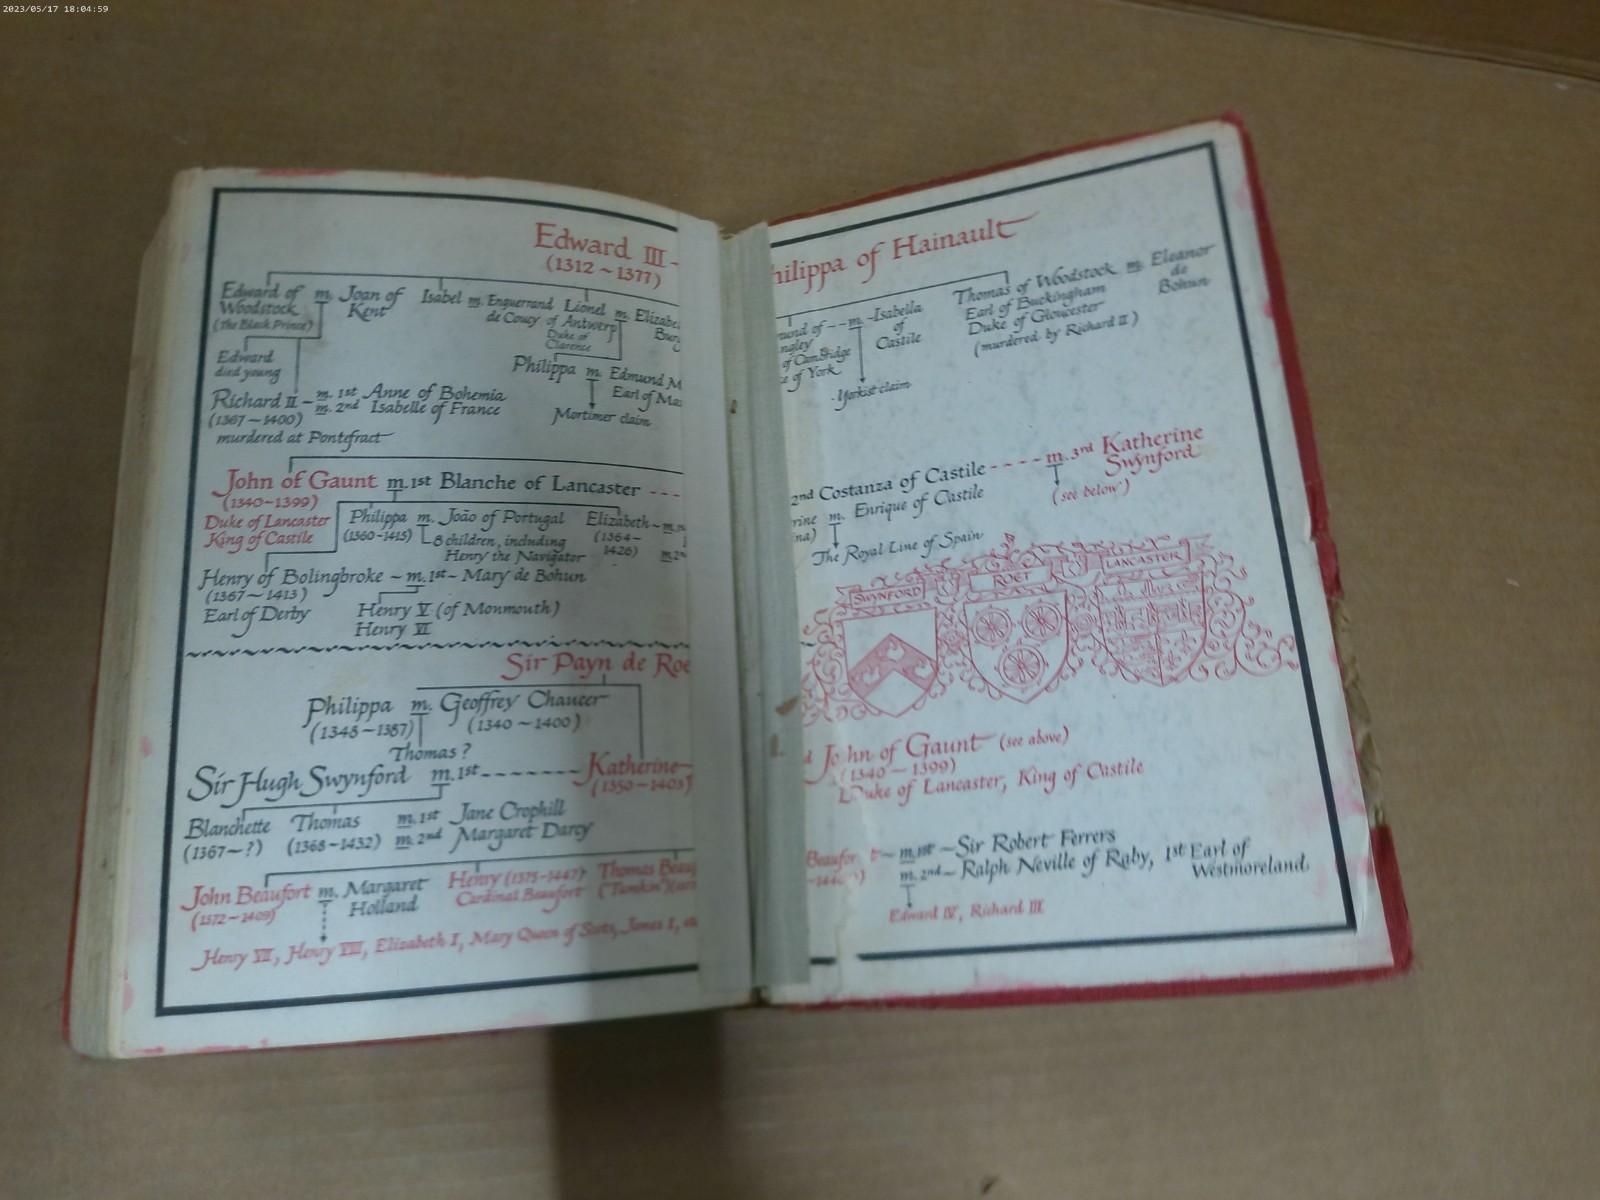 2023/05/17 18:04:59
Edward III -
(1312 ~ 1377)
Edward of
Woodstock
(The Black Prince)
m. Joan of
Kent
Isabel m. Enguerrand
de Coucy
Lionel
of Antwerp
Duke of
Clarence
m.
Edward
died young
Philippa m. Edmund M
Earl of
Mortimer claim
Richard II - m. 1st Anne of Bohemia
(1367 ~ 1400) m. 2nd Isabelle of France
murdered at Pontefract
John of Gaunt m. 1st Blanche of Lancaster ---
(1340~1399)
Duke of Lancaster
King of Castile
Philippa m. João of Portugal
(1360-1415)
8 children, including
Henry the Navigator
Elizabeth ~ m.
(1364-
1426)
Henry of Bolingbroke ~ m. 1st ~ Mary de Bohun
(1367 ~ 1413)
Earl of Derby
Henry V (of Monmouth)
Henry VI
Sir Payn de Roe
Philippa m. Geoffrey Chaucer
(1348 ~ 1387) (1340 ~ 1400)
Thomas ?
Sir Hugh Swynford m. 1st ------- Katherine
(1350 ~ 1403)
Blanchette Thomas m. 1st Jane Crophill
(1367~?) (1368~1432) m. 2nd Margaret Darcy
John Beaufort m. Margaret
Holland
(1372~1409)
Henry (1375-1447)
Cardinal Beaufort
Thomas Beau
("Tamkin")
Henry VII, Henry VIII, Elizabeth I, Mary Queen of Scots, James I,
hilippa of Hainault
of -- m. - Isabella
of
Castile
of Cambridge
of York
Yorkist claim
Thomas of Woodstock m. Eleanor
de
Bohun
Earl of Buckingham
Duke of Gloucester
(murdered by Richard II)
2nd Costanza of Castile ---- m. 3rd Katherine
Swynford
(see below)
rine m. Enrique of Castile
na)
The Royal Line of Spain
SWYNFORD ROET LANCASTER
John of Gaunt (see above)
(1340 ~ 1399)
Duke of Lancaster, King of Castile
Beaufor t ~ m. 1st ~ Sir Robert Ferrers
m. 2nd ~ Ralph Neville of Raby, 1st Earl of
Westmoreland
Edward IV, Richard III